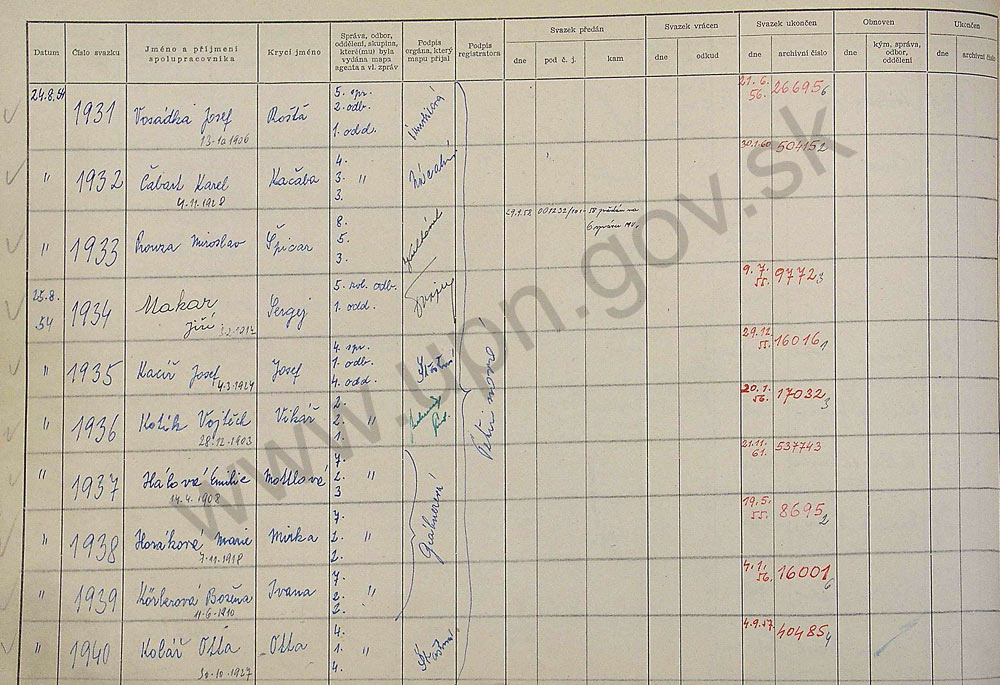 Datum
Číslo svazku
Jméno a příjmení
spolupracovníka
Krycí jméno
Správa, odbor,
oddělení, skupina,
které(mu) byla
vydána mapa
agenta a vl. zpráv
Podpis
orgána, který
mapu přijal
Podpis
registratora
Svazek předán
dne
pod č. j.
kam
Svazek vrácen
dne
odkud
Svazek ukončen
dne
archivní číslo
Obnoven
dne
kým, správa,
odbor,
oddělení
Ukončen
dne
archivní číslo
24.8.54
1931
Vosádka Josef
13.10.1906
Rošťa
5. spr.
2. odb.
1. odd.
21. 6.
56.
26695 6
"
1932
Čabart Karel
4.11.1928
Kačaba
4.
3. "
3.
30.1.60
504152
"
1933
Miroslav
Špicar
8.
5.
3.
29.9.58
6 správu MV.
25.8.
54
1934
Makar
Jiří
Sergej
5. odb.
1. odd.
9. 7.
55.
9772 3
"
1935
Kacíř Josef
4.3.1924
Josef
4. spr.
1. odb.
4. odd.
29.12.
55.
16016 1
"
1936
Kotík Vojtěch
28.12.1903
Vikář
2.
2. "
1.
20. 1.
56.
17032 3
"
1937
Emilie
14.4.1908
Mottlová
7.
2. "
3
21.11.
61.
537743
"
1938
Horáková Marie
7.11.1918
Mirka
7.
2. "
2.
19.5.
55.
8695 2
"
1939
Božena
11.6.1910
Ivana
7.
2. "
2.
4.1.
56.
16001 6
"
1940
Kolář Otta
30.10.1927
Otta
4.
1. "
4.
4.9.57.
40485 4
www.upn.gov.sk